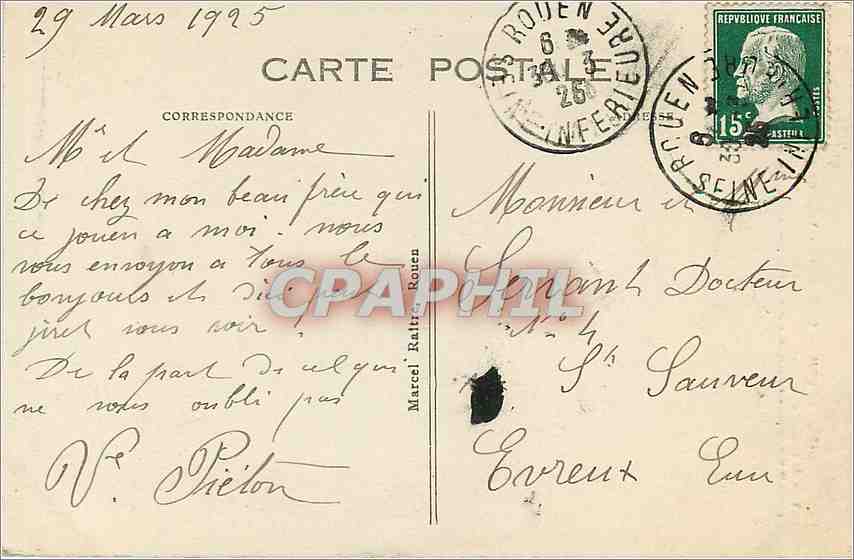 29 Mars 1925
CARTE POSTALE
CORRESPONDANCE
ADRESSE
REPVBLIQUE FRANÇAISE
POSTES
15c
PASTEUR
ROUEN
6
30 3
25
SEINE-INFERIEURE
ROUEN
SEINE INF
Mr et Madame
De chez mon beau frère qui
ce jouen a moi. nous
vous envoyon a tous le
bonjours et dici peut
jiret vous voir !
De la part de celqui
ne vous oubli pas
Ve. Piéton
Marcel Raître, Rouen
Monsieur et
Servant Docteur
No 4
St Sauveur
Evreux Eure
CPAPHIL